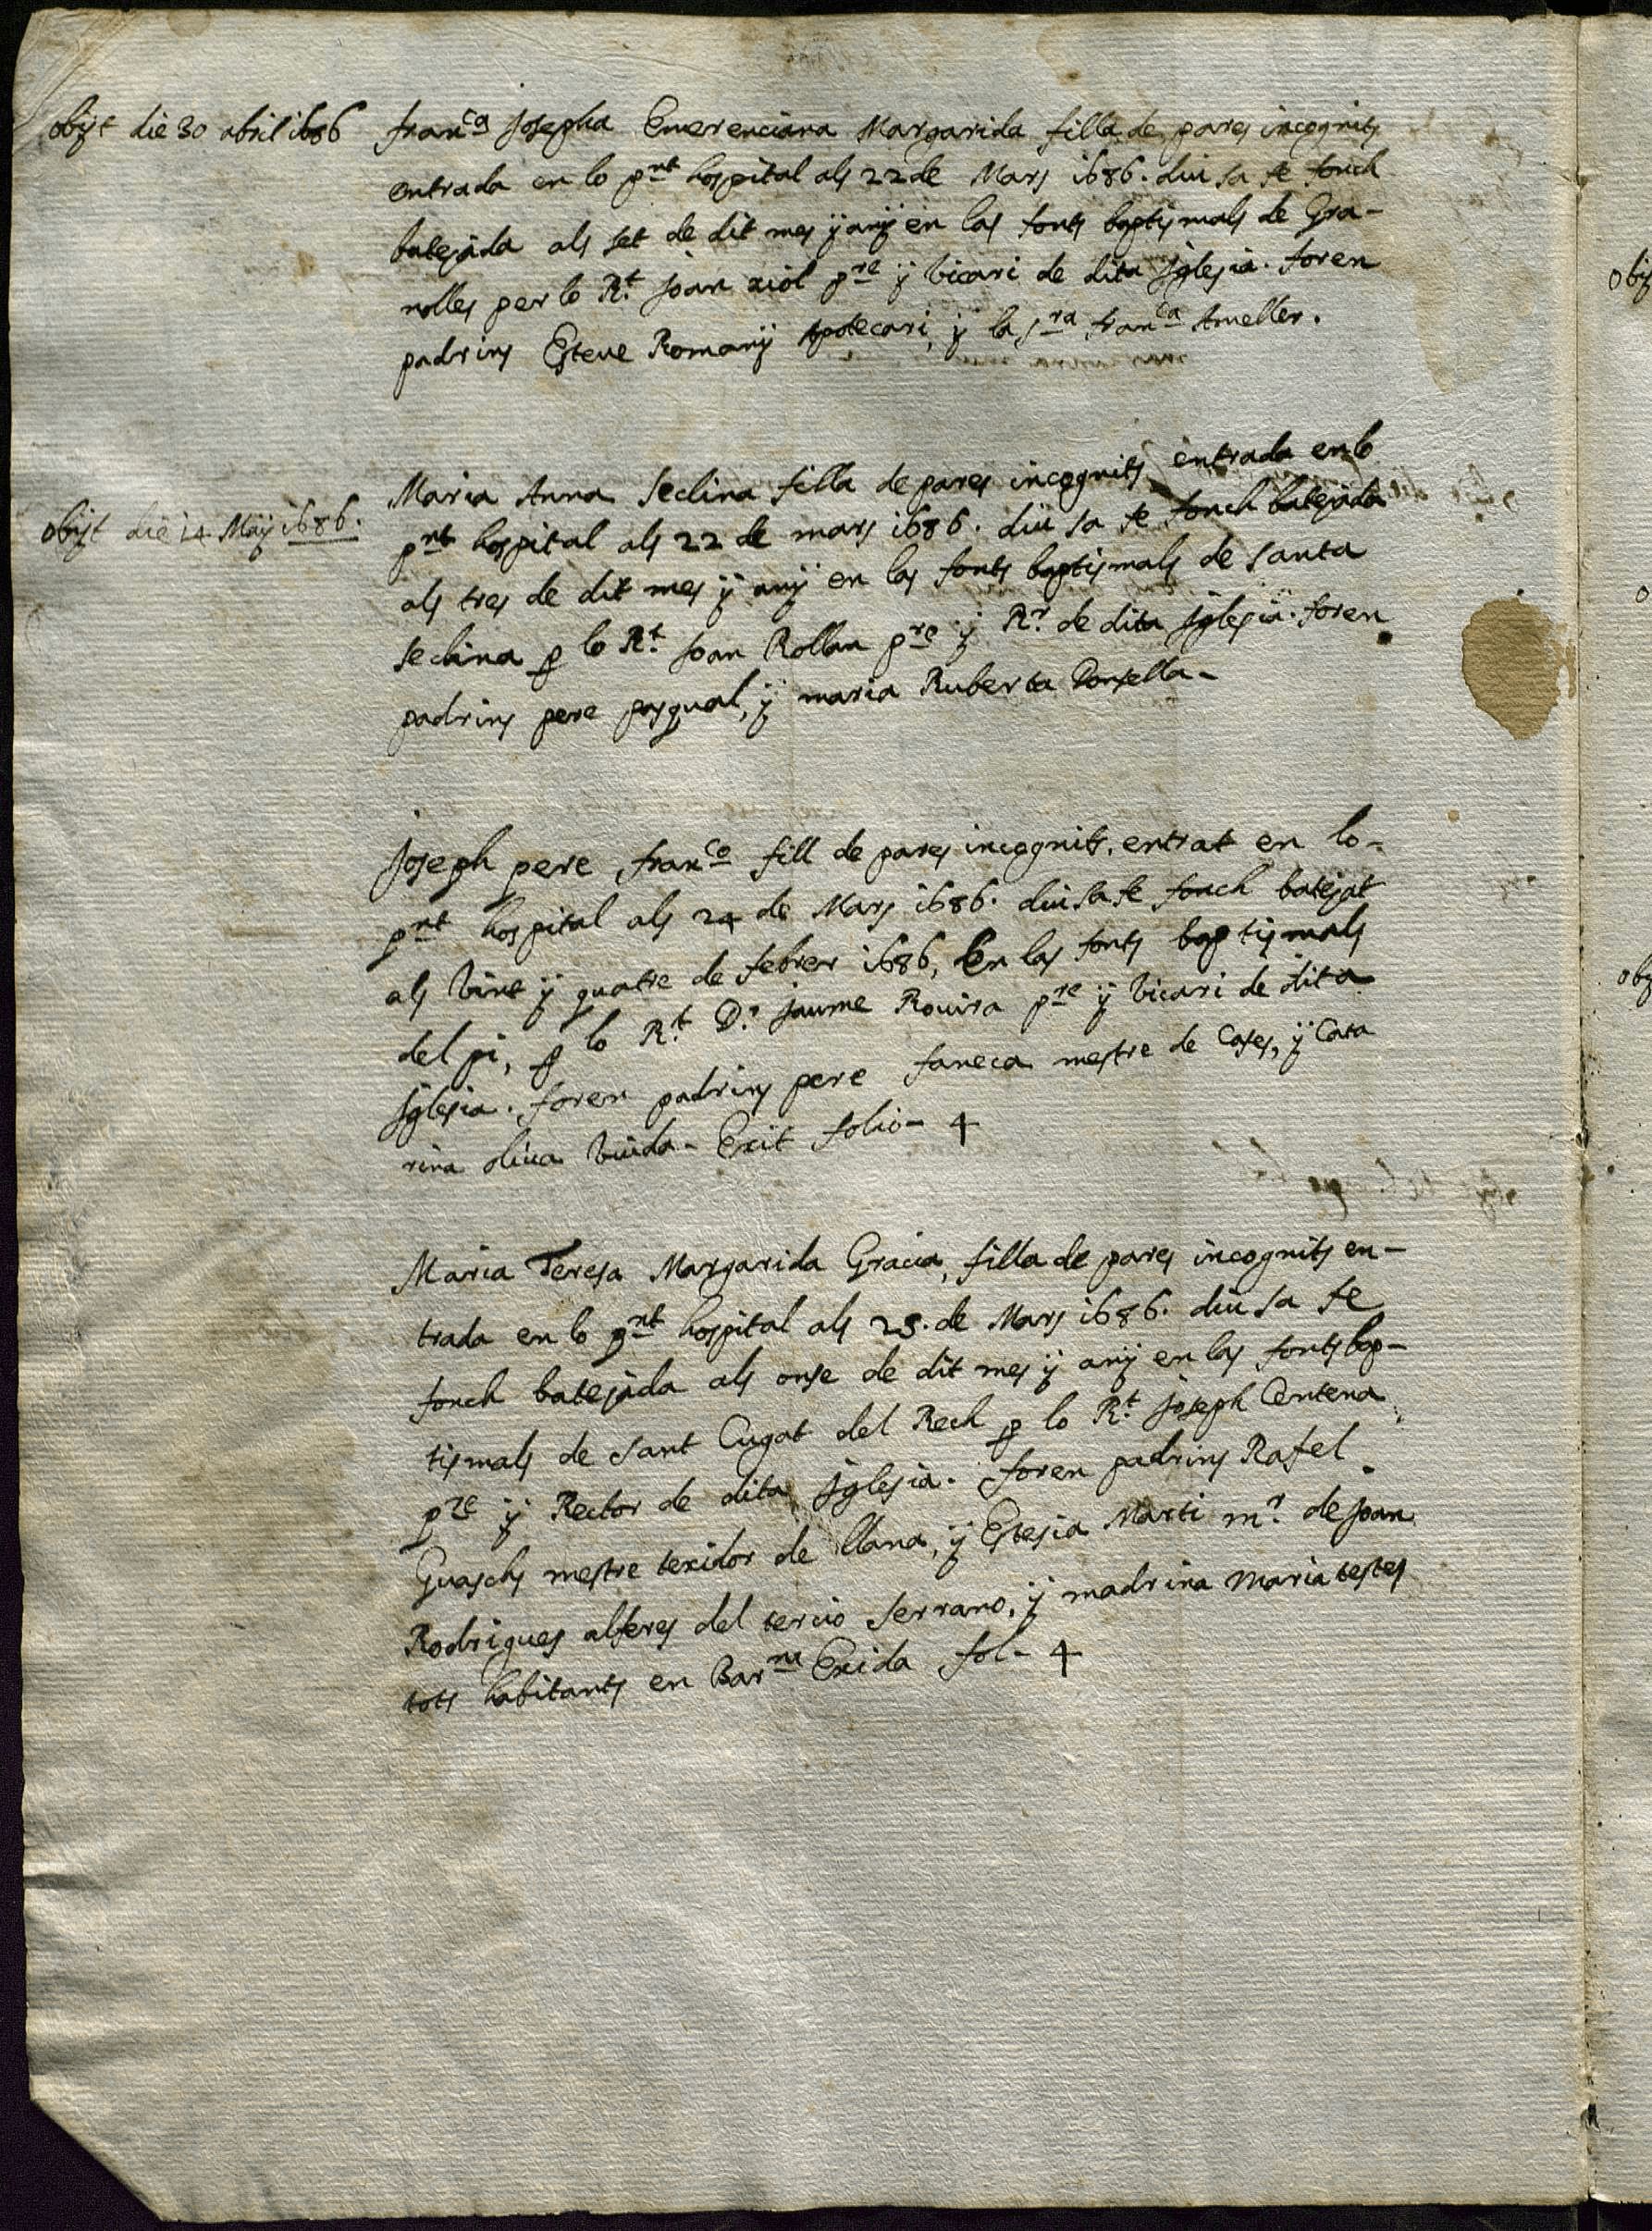 obijt die 30 abril 1686
fran.ca Josepha Emerenciana Margarida filla de pares incognits
entrada en lo pnt hospital als 22 de Mars 1686. diu sa fe fonch
batejada als set de dit mes ÿ anÿ en las fonts baptismals de Gra-
nolles per lo R.t Joan xiol pre ÿ Vicari de dita Jglesia. foren
padrins Esteve Romanÿ Apotecari, ÿ la sra fran.ca Ameller.
obijt die 14 Maÿ 1686.
Maria Anna Seclina filla de pares incognits entrada en lo
pnt hospital als 22 de mars 1686. diu sa fe fonch batejada
als tres de dit mes ÿ anÿ en las fonts baptismals de santa
seclina p lo R.t Joan Rollan pre ÿ R.r de dita Jglesia. foren
padrins pere pasqual, ÿ maria Ruberta Donsella-
Joseph pere fran.co fill de pares incognits. entrat en lo-
pnt hospital als 24 de Mars 1686. diu sa fe fonch batejat
als Vint ÿ quatre de febrer 1686, En las fonts baptismals
del pi, p lo R.t D.r Jaume Rovira pre ÿ Vicari de dita
Jglesia. foren padrins pere faneca mestre de Cases, ÿ Cata
rina oliva Viuda- Exit folio- 4
Maria Teresa Margarida Gracia, filla de pares incognits en-
trada en lo pnt hospital als 25. de Mars 1686. diu sa fe
fonch batejada als onse de dit mes ÿ anÿ en las fonts bap-
tismals de Sant Cugat del Rech p lo R.t Joseph Centena
pre ÿ Rector de dita Jglesia. foren padrins Rafel
Guaschs mestre texidor de llana, ÿ Estesia Marti m.r de Joan
Rodrigues alferes del tercio serrano, ÿ madrina Maria testes
tots habitants en Bar.na Exida fol- 4